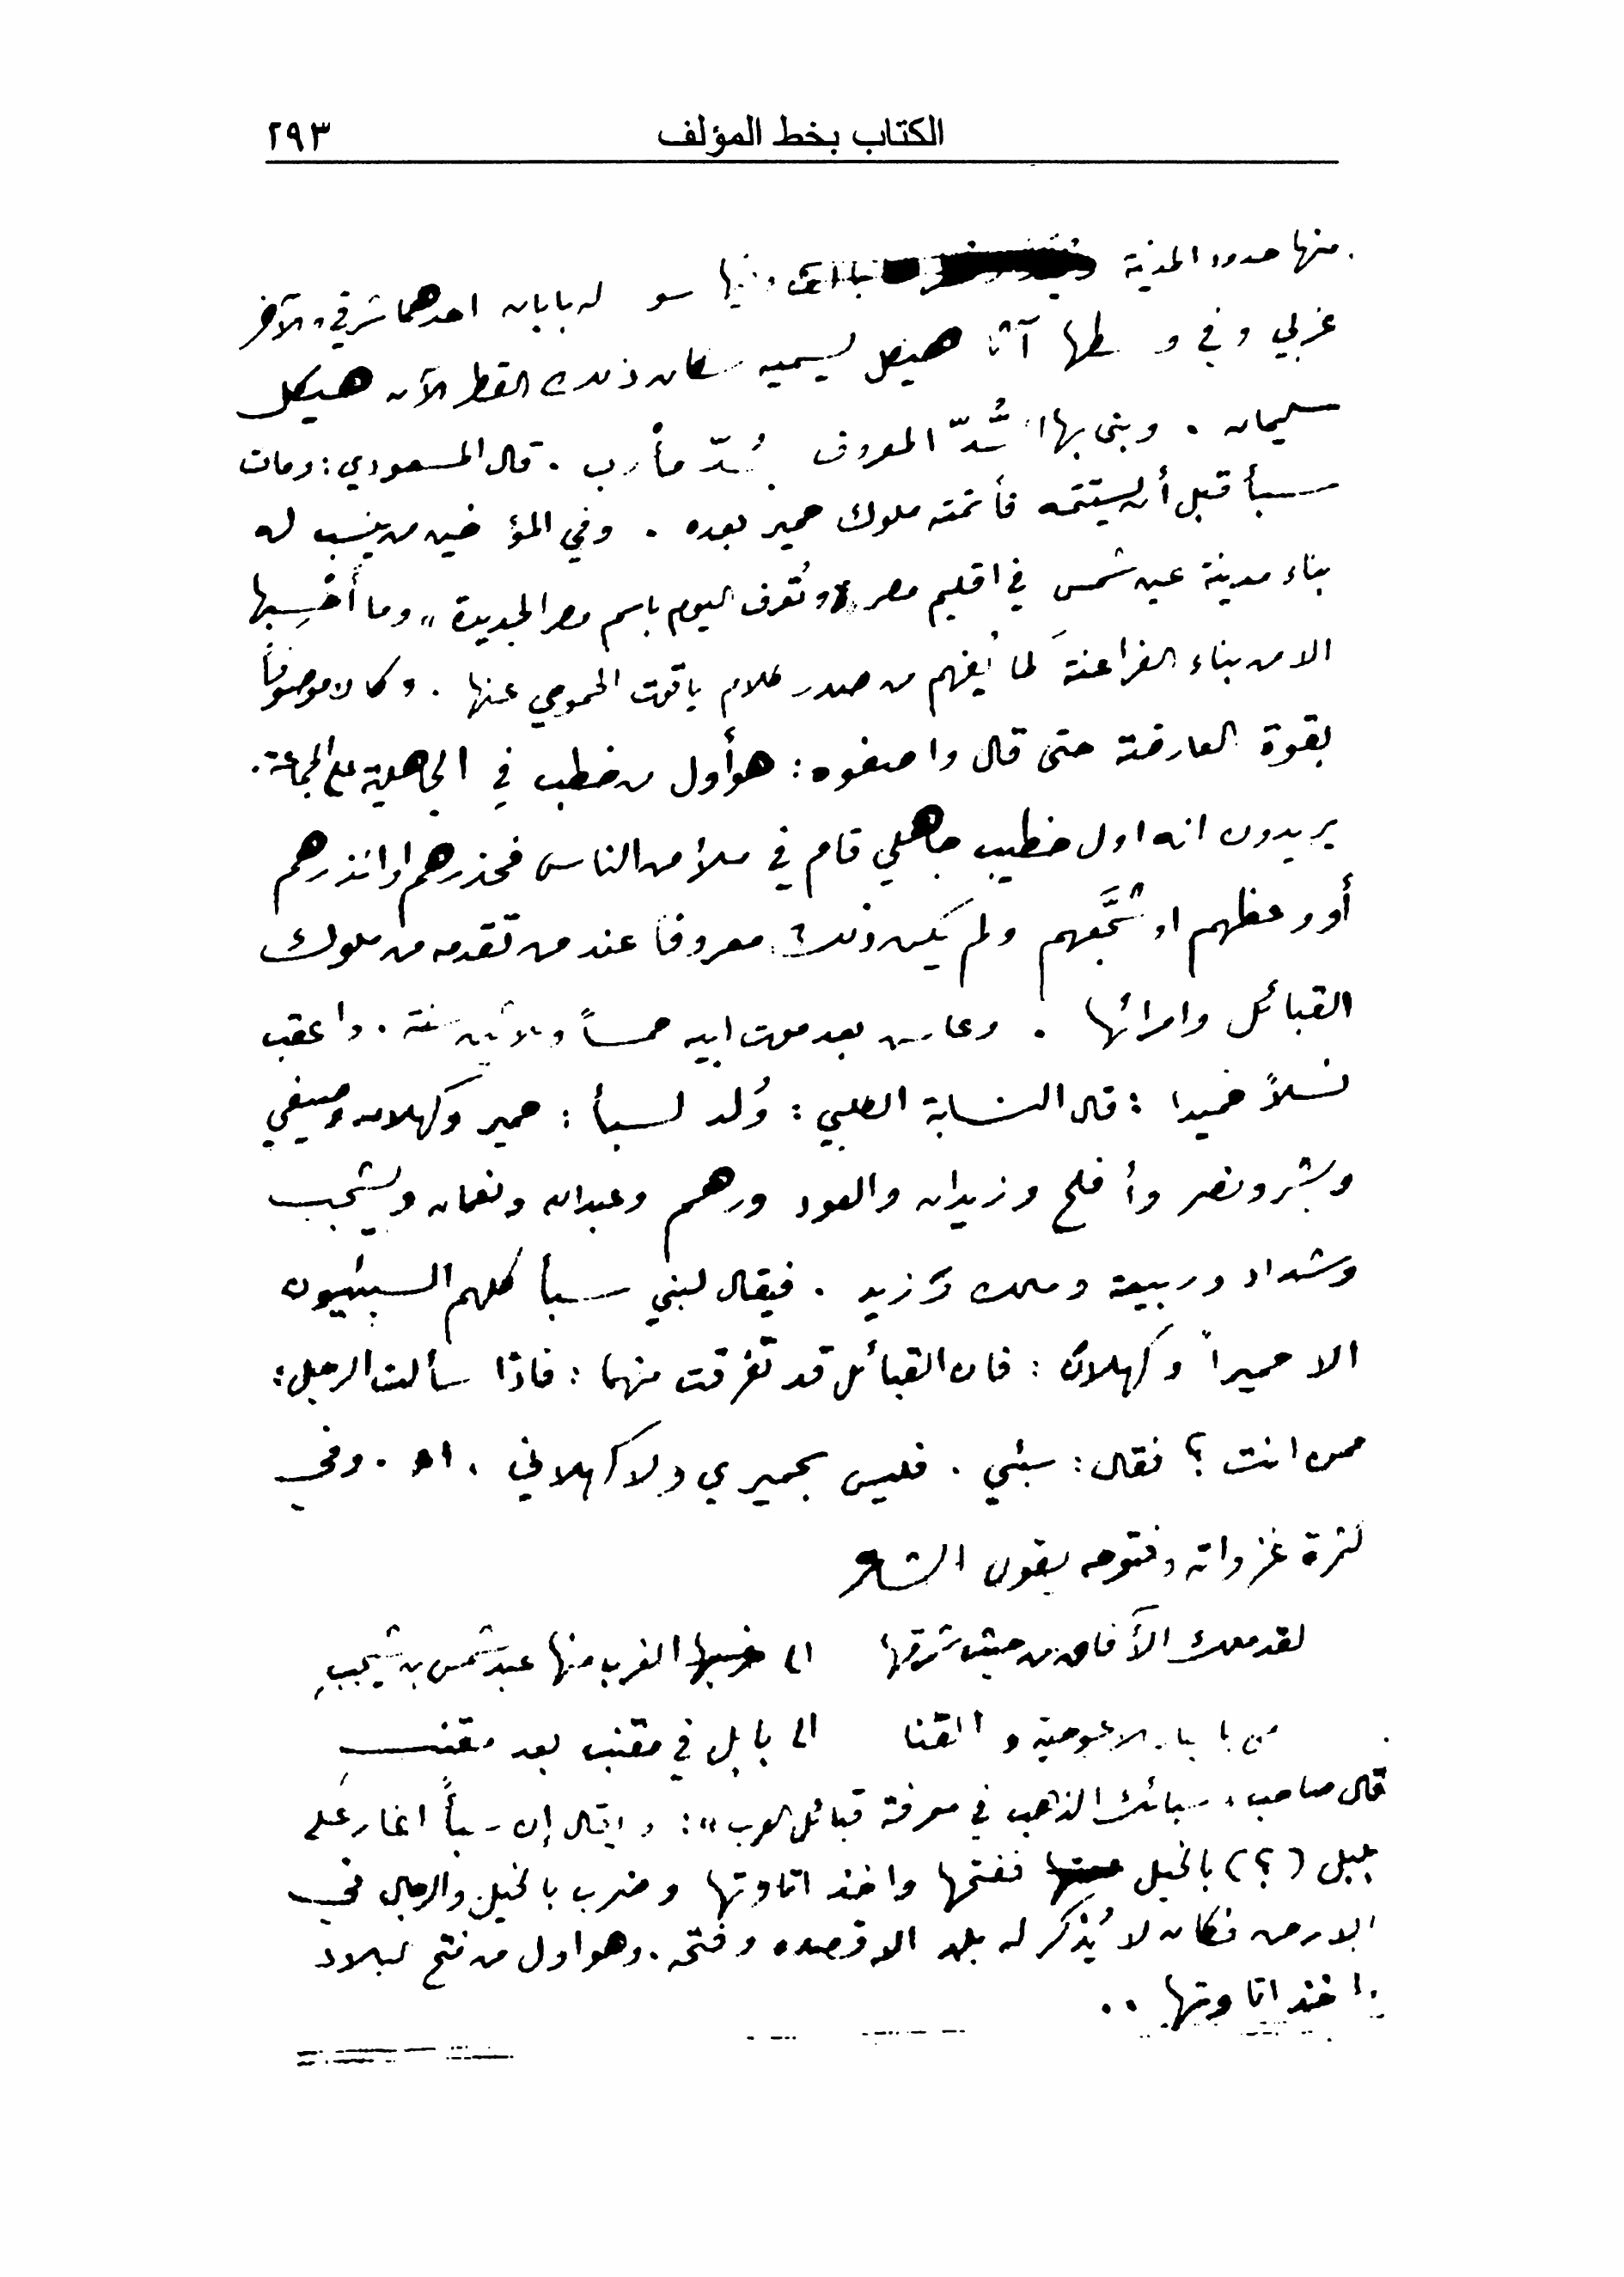 الكتاب بخط المؤلف ٢٩٣
منها حدود المدينة وفيها سو له بابان احدهما شرقي والآخر
غربي وفي و طها آثا هيكل يسميه سكان ذلك القطر الآن هيكل
سليمان . وبنى بها السُّدّ المعروف بسُدّ مأرب . قال المسعودي : ومات
سبأ قبل أن يستتمه فأتمته ملوك حمير بعده . وفي المؤ خين من ينسب له
بناء مدينة عين شمس في اقليم مصر «وتُعرف اليوم باسم مصر الجديدة» وما أحْسِبها
الا من بناء الفراعنة لما يُفهم من صدر كلام ياقوت الحموي عنها . وكان موصوفاً
بقوة العارضة حتى قال واصفوه : هو أول من خطب في الجاهلية على الجماعة .
يريدون انه اول خطيب جاهلي قام في ملأ من الناس فحذرهم او انذرهم
أو وعظهم او شجَّعهم ولم يكن ذلك معروفا عند من تقدمه من ملوك
القبائل وامرائها . وعاش بعد موت ابيه خمساً وثلاثين سنة . واعقب
نسلاً ضخما : قال النسابة الكلبي : وُلد لسبأ : حمير وكهلان وصيفي
وبشر ونصر وأفلح وزيدان والعود ورهم وعبدالله ونعمان ويشجب
وشداد وربيعة ومالك وزيد . فيقال لبني سبأ كلهم السبئيون
الا حميراً وكهلان : فان القبائل قد تفرقت منهما : فاذا سألت الرجل :
ممن انت ؟ فقال : سبئي . فليس بحميري ولا كهلاني . اهـ . وفي
كثرة غزواته وفتوحه يقول الشاعر
لقد ملك الآفاق من حيث شرقها الى الغرب منها عبد شمس بن يشجبِ
الاعوجية و القنا الى بابل في مقنب بعد مقنبِ
قال صاحب «سبائك الذهب في معرفة قبائل العرب» : ويقال إن سبأً اغار على
بابل (؟) بالخيل ففتحها واخذ اتاوتها وضرب بالخيل والرجال في
الارض فكان لا يُذكر له بلد الا قصده وفتحه . وهو اول من فتح البلاد
واخذ اتاوتها ..